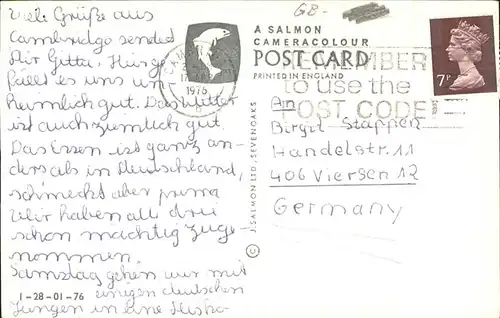 Viele Grüße aus
Cambridge sendet
Dir Gitta. Hier ge-
fällt es uns un-
heimlich gut. Das Wetter
ist auch ziemlich gut.
Das Essen ist ganz an-
ders als in Deutschland,
schmeckt aber prima
Wir haben alle drei
schon mächtig zuge-
nommen.
Samstag gehen wir mit
einigen deutschen
Jungen in eine Disko-
1-28-01-76
GB-
A SALMON
CAMERACOLOUR
POST CARD
PRINTED IN ENGLAND
1976
REMEMBER
to use the
POST CODE
7P
J. SALMON LTD., SEVENOAKS ©
An
Birgit Stappen
Handelstr. 11
406 Viersen 12
Germany